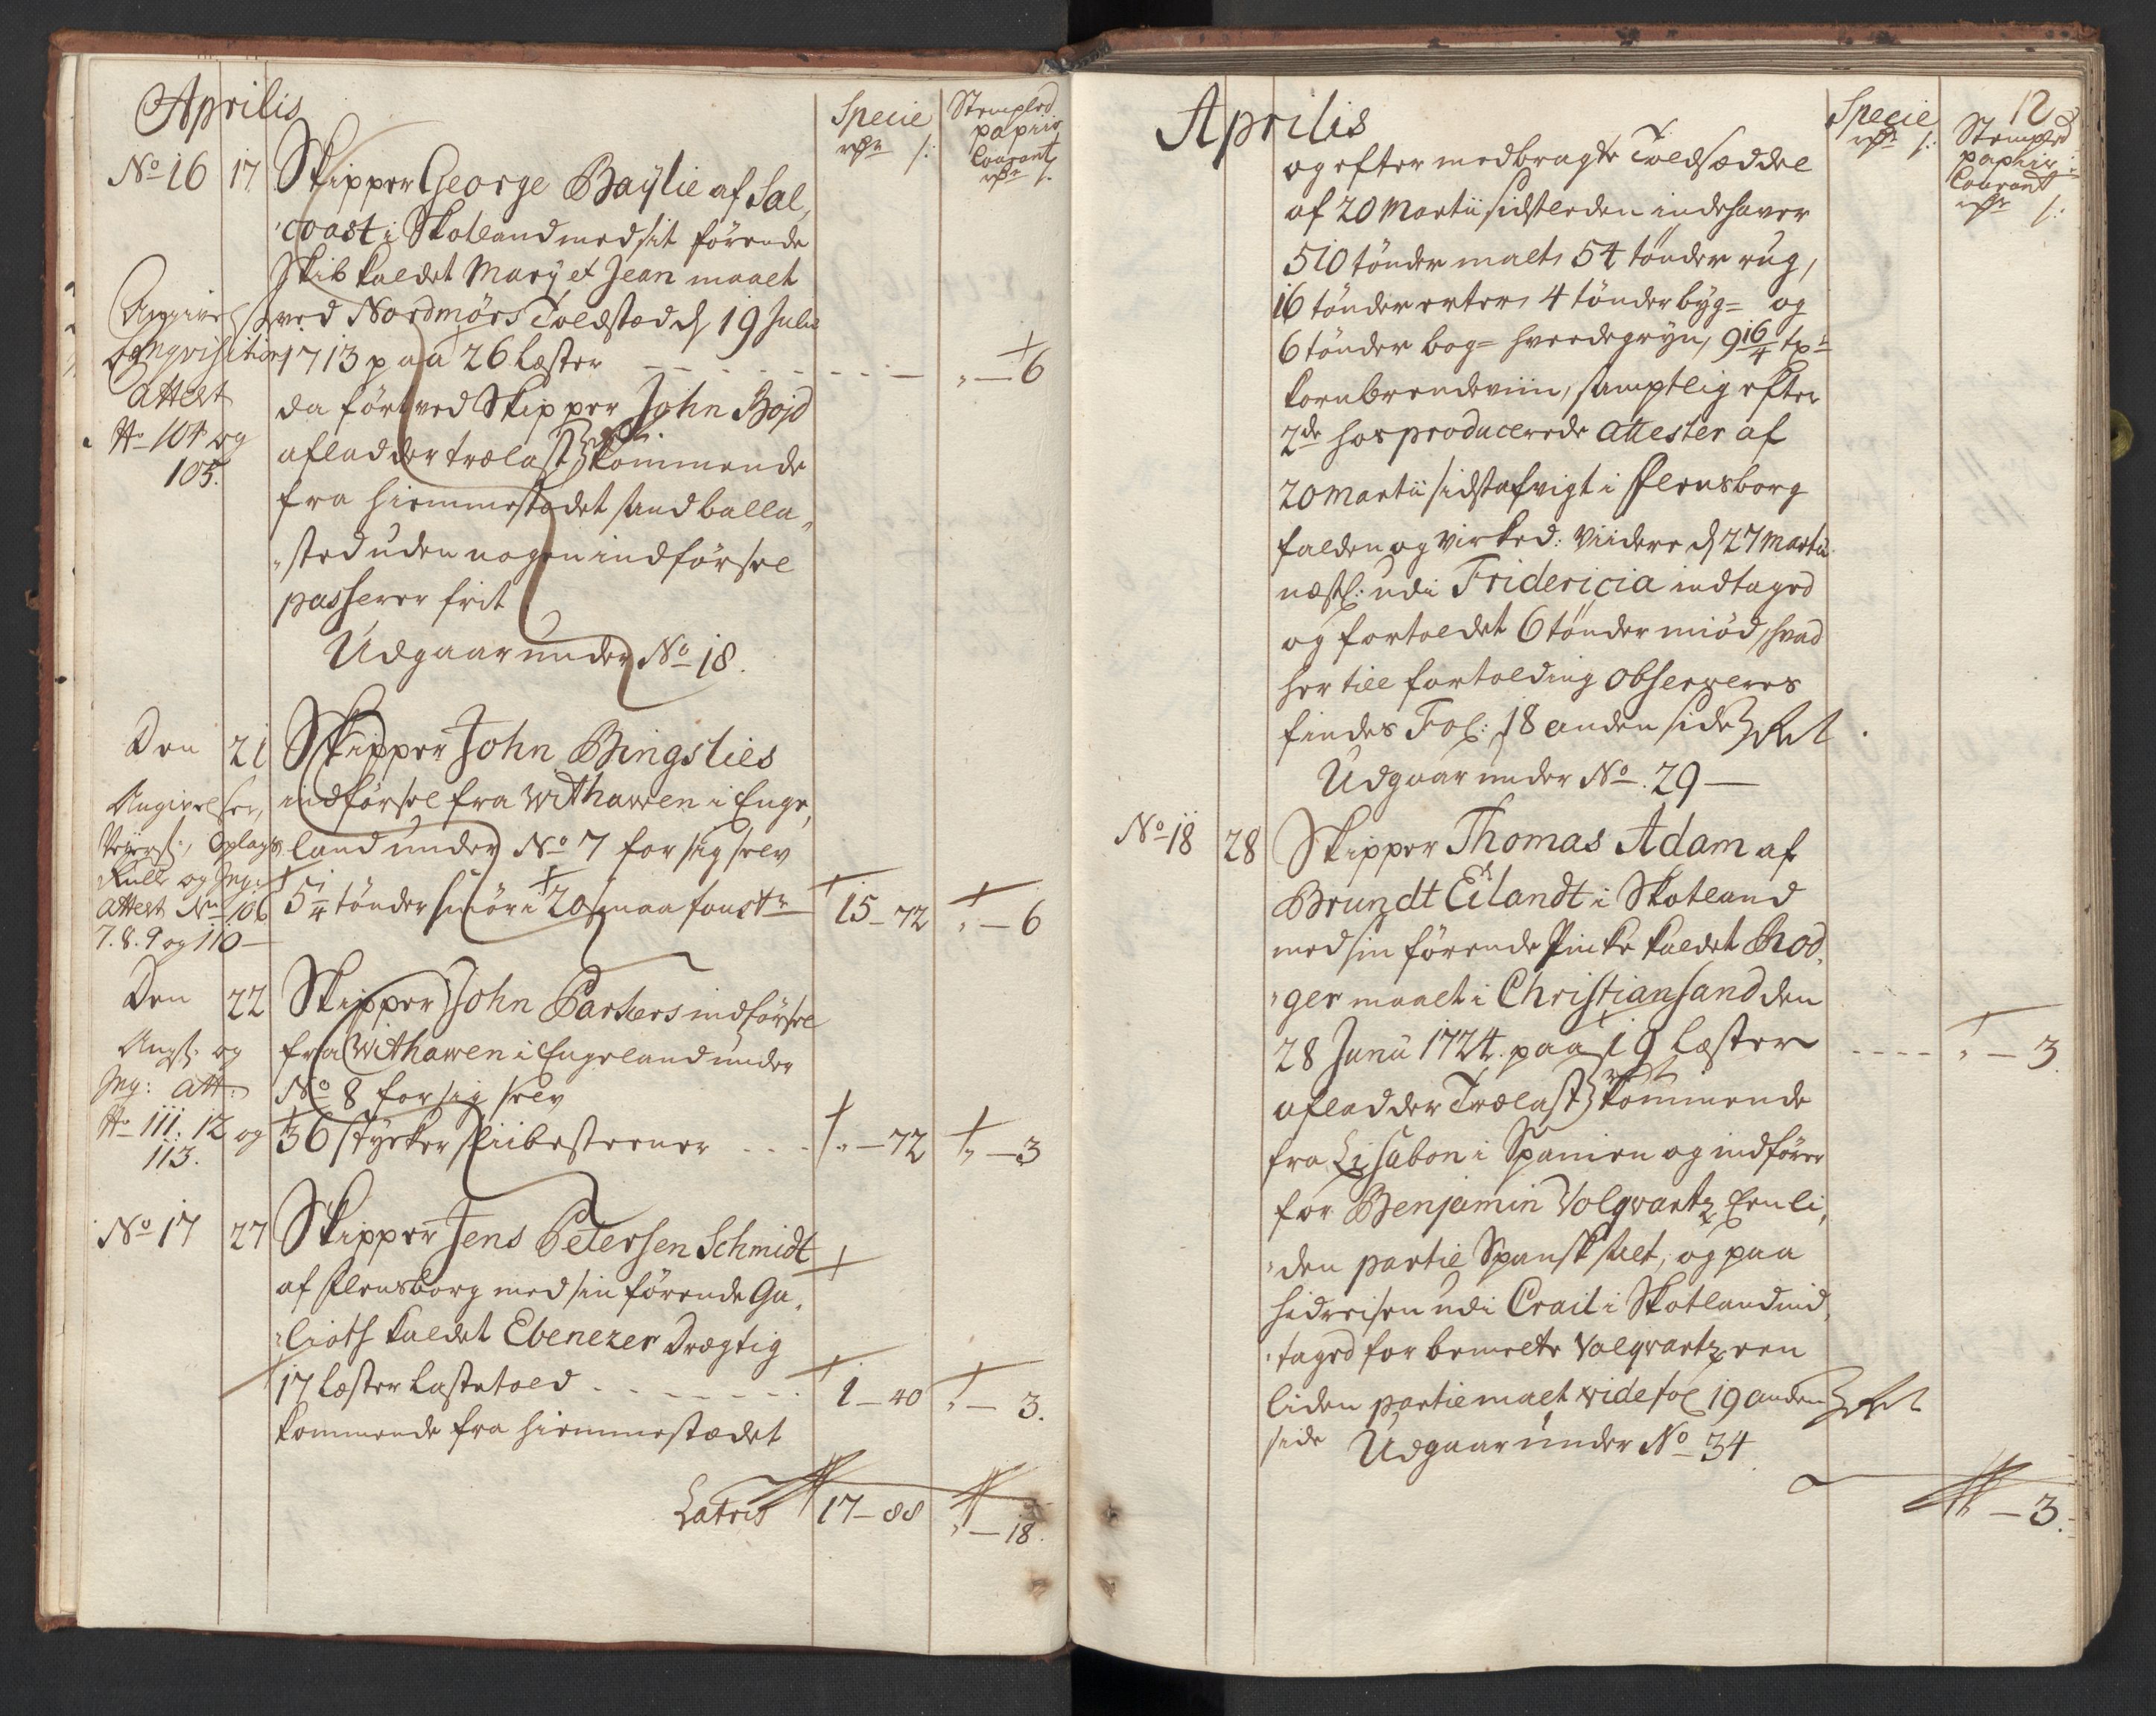 Aprilis
Specie
rdr ß:
Stempled
papiir
Courant
rdr ß.
No 16 17 Skipper George Baÿlie af Sal,
"coast i Skotland med sit förende
Skib kaldet Marÿ et Jean maalt
Angivels ved Nordmörs Toldsted d 19 Julii
og Inqvisition 1713 paa 26 læster - - - - - - " — 6
Attest
da fört ved Skipper John Bojd
No 104 og
105.
afladder trælast, kommende
fra hiemmestædet sandballa,
"sted uden nogen indförsel
passerer frit
Udgaar under No 18.
Den 21 Skipper John Bingslies
Angivelser, indförsel fra Withawen i Enge,
Oplags land under No 7 for sig selv
Rulle og Inq:
Attest No 106 5 1/4 tönder smör i 20 smaa foust. 15 — 72 " — 6
7. 8. 9 og 110 —
Den 22 Skipper John Parkers indförsel
Angs. og fra Withawen i Engeland under
Inq: Att: No 8 for sig selv
No 111. 12 og 36 stÿcker sliibesteener - - - " — 72 " — 3
113.
No 17 27 Skipper Jens Petersen Schmidt
af Flensborg med sin förende Ga,
"lioth kaldet Ebenezer drægtig
17 læster lastetold - - - - - - 1 — 40 " — 3.
kommende fra hiemmestædet
Latris 17 — 88 " — 18.
12
Aprilis
Specie
rdr ß:
Stempled
papiir
Courant
rdr ß:
og efter medbragte Toldsæddel
af 20 Martii sidstleden indehaver
510 tönder malt, 54 tönder rug,
16 tönder erter, 4 tönder bÿg= og
6 tönder bog= hvedegrÿn, 9 16/4 tpr
kornbrendeviin, samptlig efter
2de hosproducerede Attester af
20 Martii sidst afvigt i Flensborg
falden og virked: Viidere d 27 Martii
næstl: udi Fridericia indtaged
og fortoldet 6 tönder miöd, hvad
her till fortolding observeres
findes Fol: 18 anden side
Udgaar under No. 29 —
No 18 28 Skipper Thomas Adam af
Brundt Eilandt i Skotland
med sin förende Pincke kaldet Rod,
"ger maalt i Christiansand den
28 Junii 1724. paa 19 læster - - - - " — 3.
afladder Trælast, kommende
fra Lisabon i Spanien og indförer
for Benjamin Volqvartz Een li,
"den partie Spansk salt, og paa
hidreisen udi Crail i Skotland ind,
"taged for bemelte Volqvartz een
liden partie malt vide fol 19 anden
side Udgaar under No 34
" — 3.